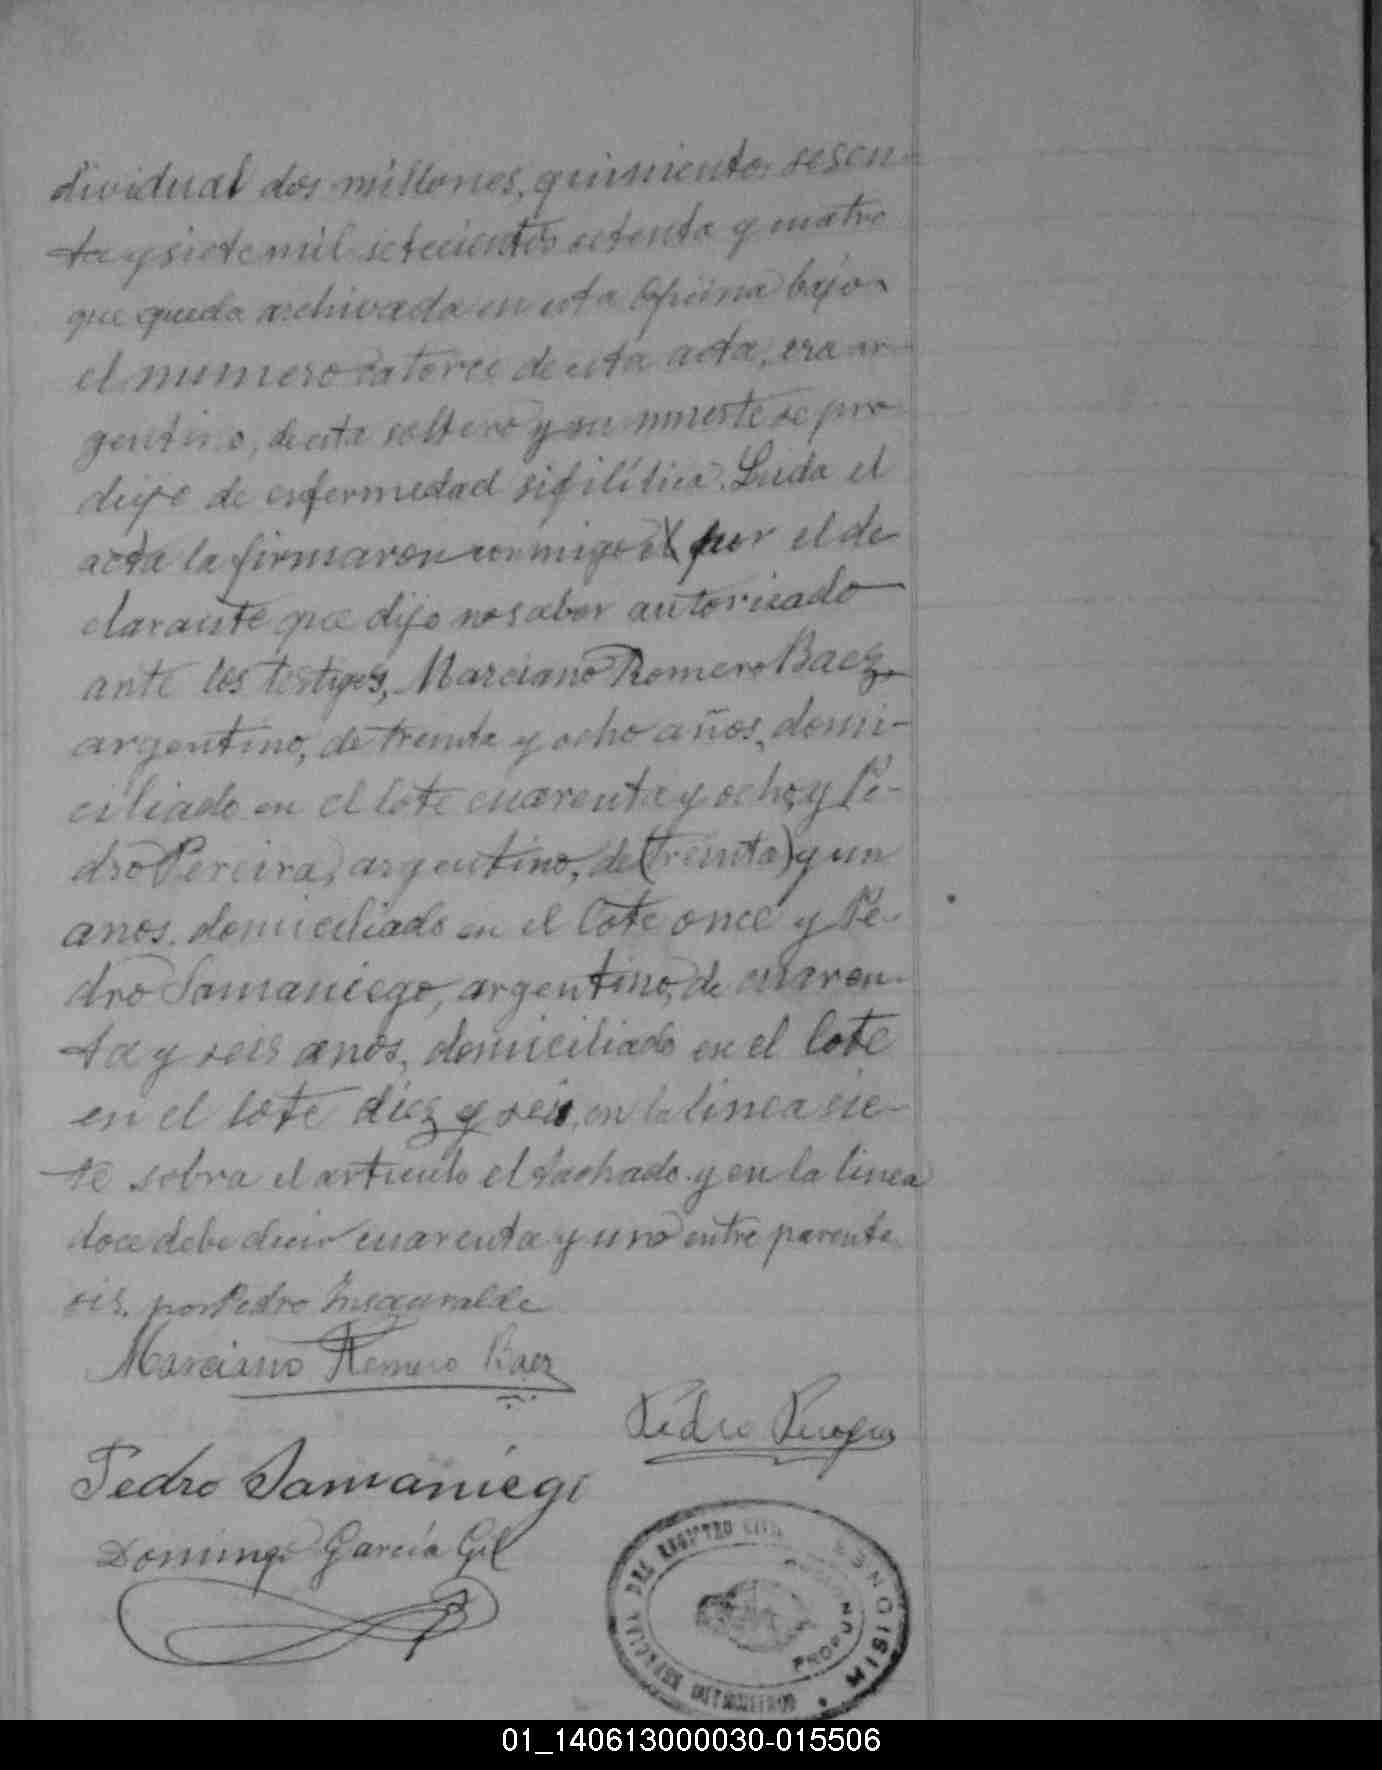 dividual dos millones, quinientos sesen-
ta y siete mil setecientos setenta y cuatro
que queda archivada en esta Oficina bajo
el numero catorce de esta acta, era ar-
gentino, de esta soltero y su muerte se pro
dujo de enfermedad sifilítica. Leida el
acta la firmaron conmigo el por el de
clarante que dijo no saber autorizado
ante los testigos, Marciano Romero Baez,
argentino, de treinta y ocho años, domi-
ciliado en el lote cuarenta y ocho, y Pe-
dro Pereira, argentino, de (treinta) y un
anos. domiciliado en el lote once y Pe-
dro Samaniego, argentino, de cuaren-
ta y seis anos, domiciliado en el lote
en el lote diez y seis, en la linea sie-
te sobra el articulo el tachado. y en la linea
doce debe decir cuarenta y uno entre parente
sis. por Pedro Insaurralde
Marciano Romero Baez
Pedro Pereira
Pedro Samaniego
Domingo García Gil
DEL REGISTRO CIVIL
MISIONES
01_140613000030-015506